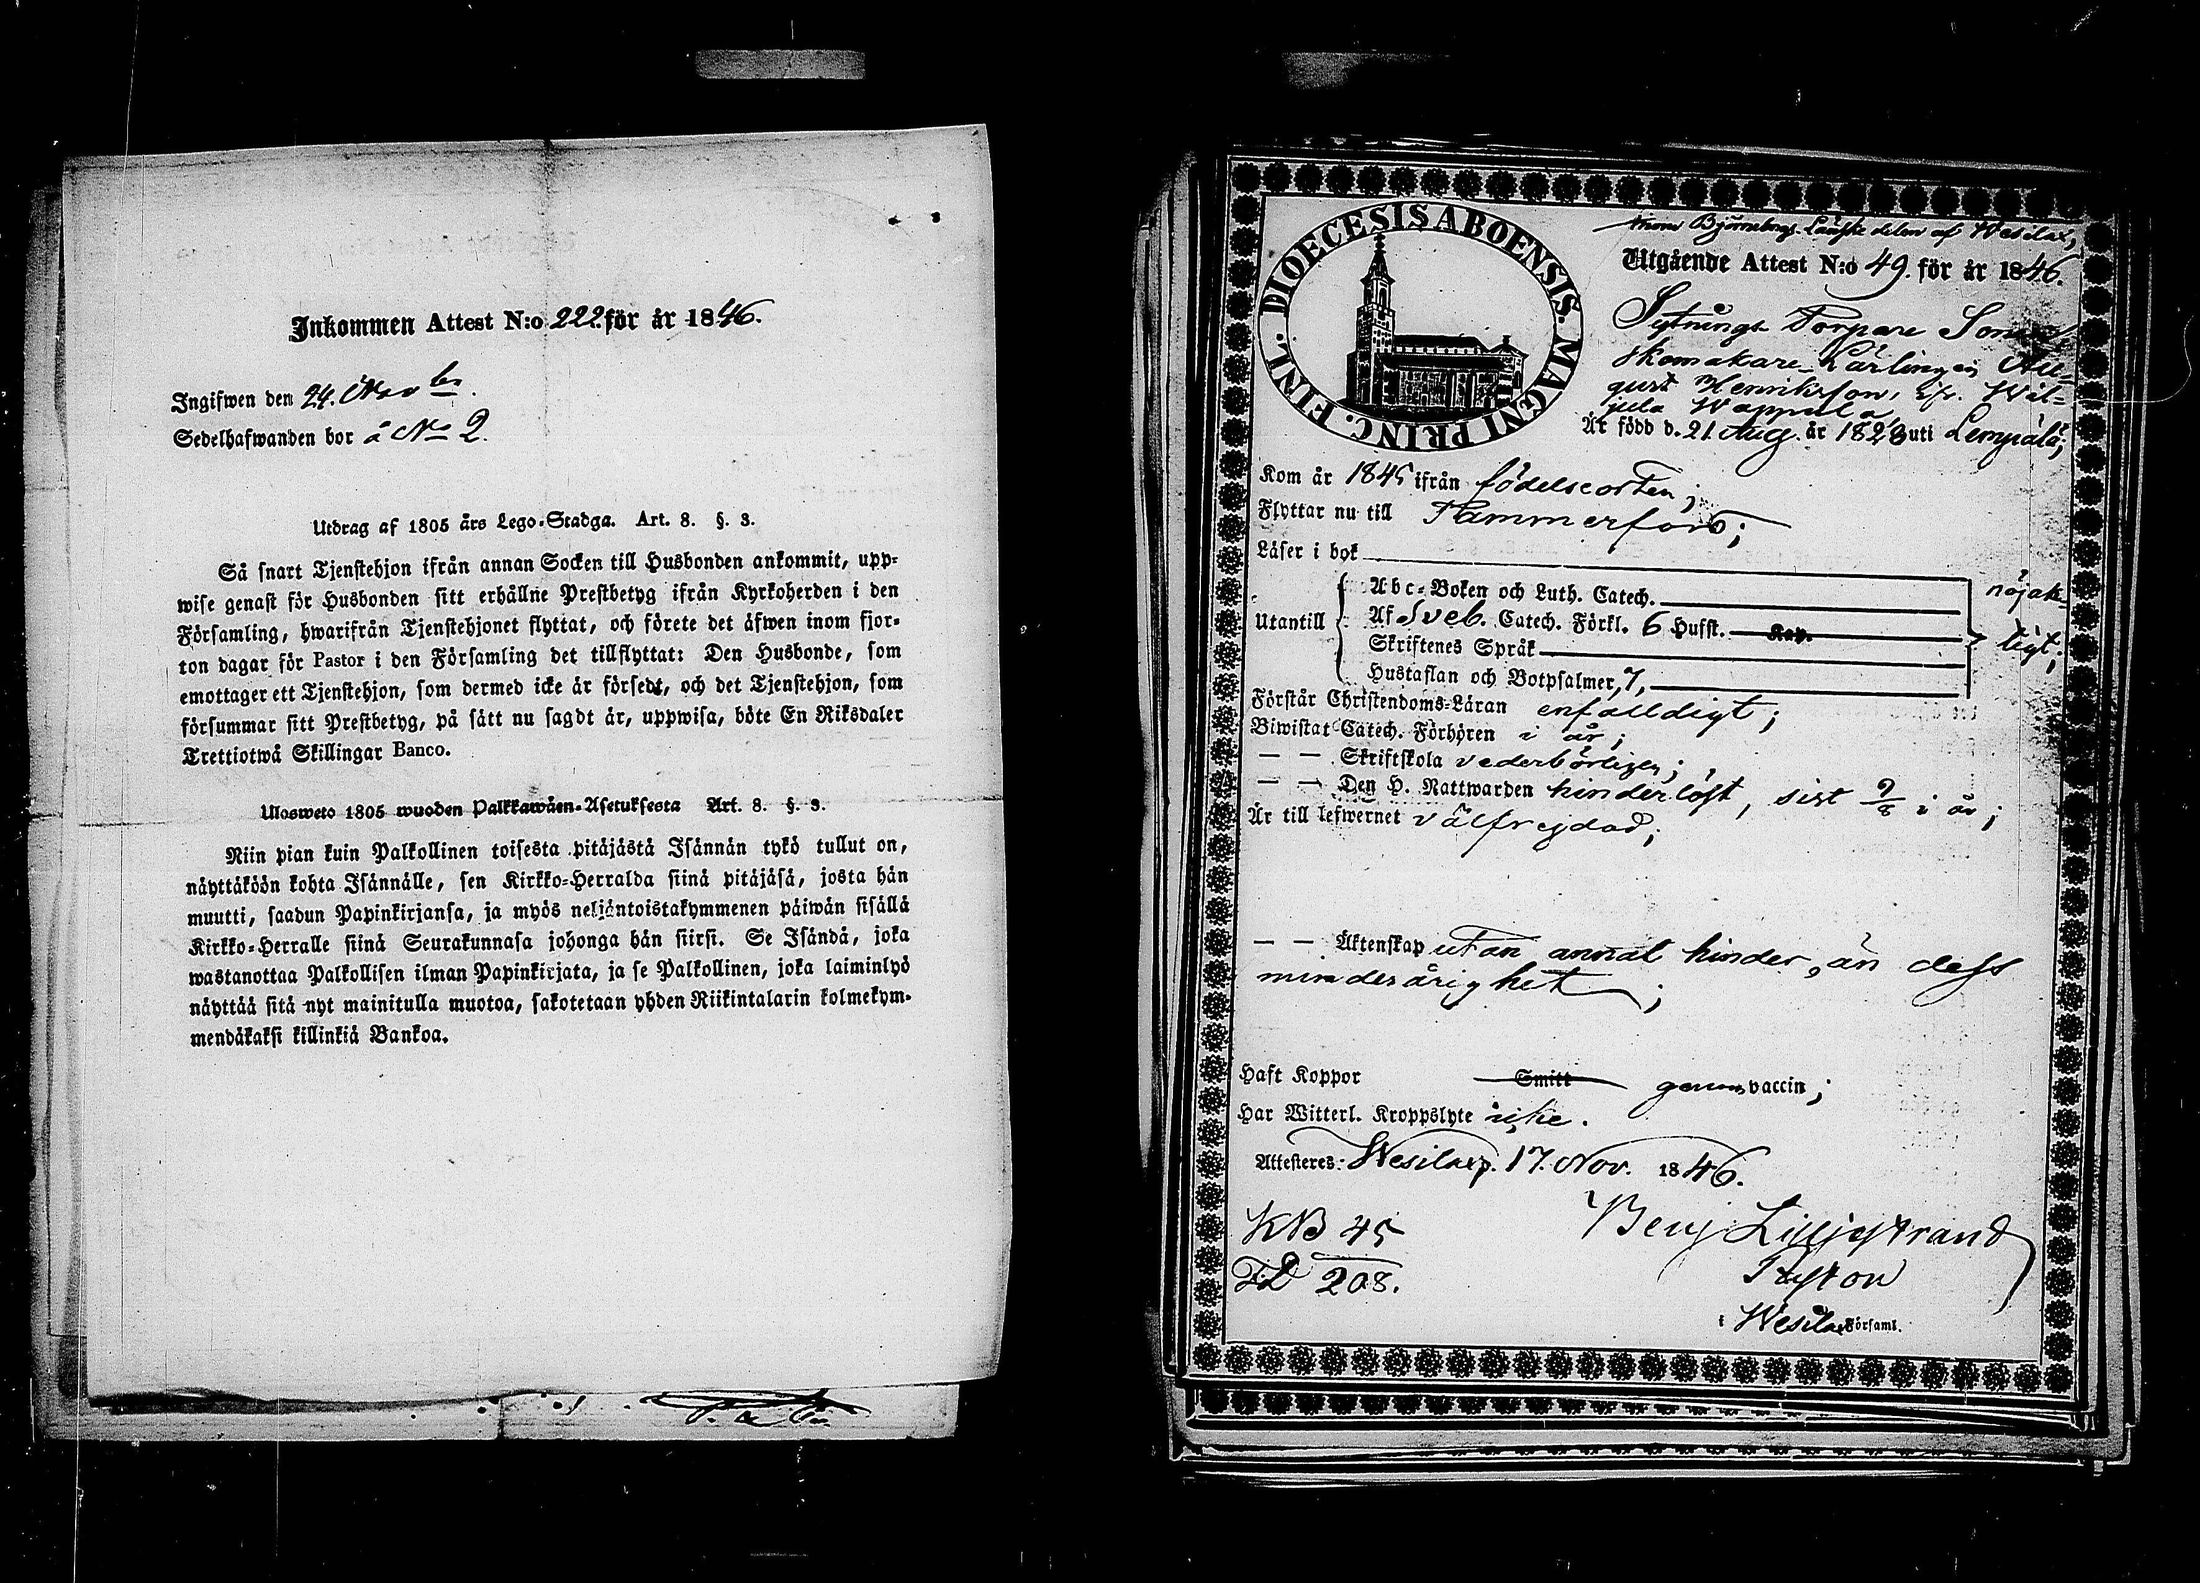 Inkommen Attest N:o 222. för år 1846.
Ingifwen den 24. Novbr.
Sedelhafwanden bor å No 2.
Utdrag af 1805 års Lego-Stadga. Art. 8. §. 3.
Så snart Tjenstehjon ifrån annan Socken till Husbonden ankommit, upp-
wise genast för Husbonden sitt erhållne Prestbetyg ifrån Kyrkoherden i den
Församling, hwarifrån Tjenstehjonet flyttat, och förete det äfwen inom fjor-
ton dagar för Pastor i den Församling det tillflyttat: Den Husbonde, som
emottager ett Tjenstehjon, som dermed icke är försedt, och det Tjenstehjon, som
försummar sitt Prestbetyg, på sätt nu sagdt är, uppwisa, böte En Riksdaler
Trettiotwå Skillingar Banco.
Ulosweto 1805 wuoden Palkkawäen-Asetuksesta Art. 8. §. 3.
Niin pian kuin Palkollinen toisesta pitäjästä Isännän tykö tullut on,
näyttäköön kohta Isännälle, sen Kirkko-Herralda siinä pitäjäsä, josta hän
muutti, saadun Papinkirjansa, ja myös neljäntoistakymmenen päiwän sisällä
Kirkko-Herralle siinä Seurakunnasa johonga hän siirsi. Se Isändä, joka
wastanottaa Palkollisen ilman Papinkirjata, ja se Palkollinen, joka laiminlyö
näyttää sitä nyt mainitulla muotoa, sakotetaan yhden Riikintalarin kolmekym-
mendäkaksi killinkiä Bankoa.
DIOECESIS ABOENSIS. MAGNI PRINC. FINL.
från Björneborgs Länske delen af Wesilax,
Utgående Attest N:o 49. för år 1846.
Sytnings Torpare Sonen,
skomakare Lärlingen Au-
gust Henriksson, ifr. Wil-
jula Wappula
Är född d. 21 Aug. år 1828 uti Lempälä;
Kom år 1845 ifrån födelseorten;
Flyttar nu till Tammerfors;
Läser i bok
Abc-Boken och Luth. Catech. nöjak-
Utantill Af Sveb. Catech. Förkl. 6 Hufst. Kap. ligt;
Skriftenes Språk
Hustaflan och Botpsalmer, 7,
Förstår Christendoms-Läran enfalldigt;
Biwistat Catech. Förhören i år;
— — Skriftskola vederbörligen;
— — Den H. Nattwarden hinderlöst, sist 9/8 i år;
Är till lefwernet välfrejdad;
— — Äktenskap utan annat hinder, än dess
minderårighet;
Haft Koppor Smitt genom vaccin;
Har Witterl. Kroppslyte icke.
Attesteres: Wesilax p. 17. Nov. 1846.
KB 45
FD 208.
Benj Lilljestrand
Pastor
i Wesilax Församl.